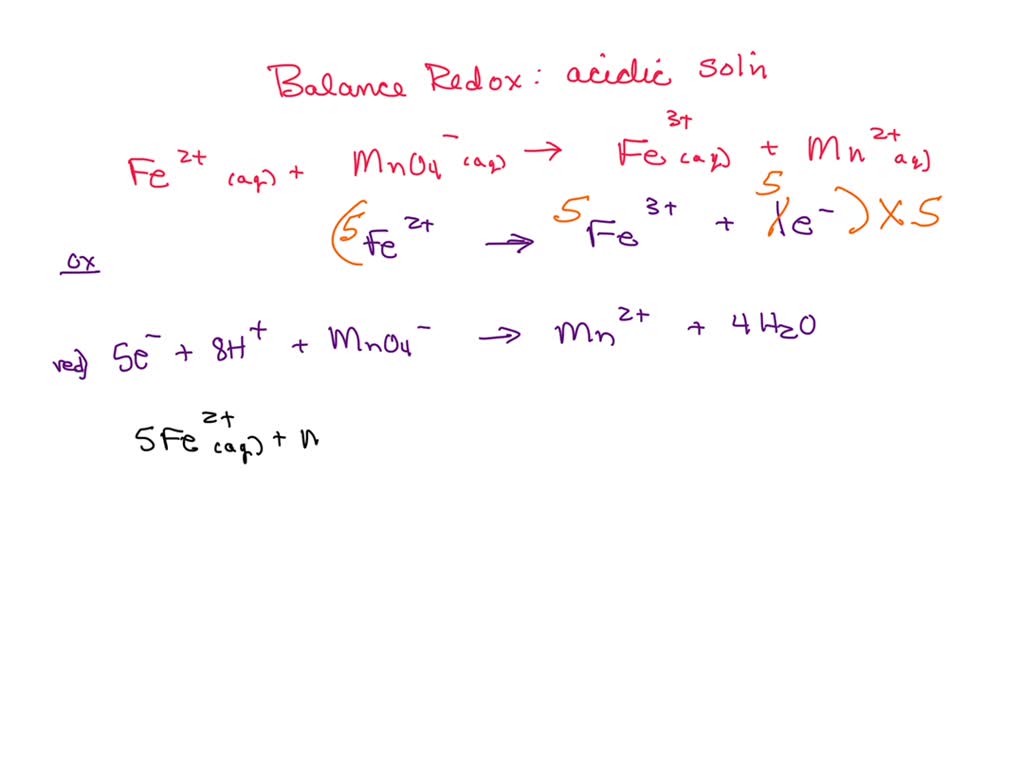 Balance Redox: acidic soln
Fe²⁺(aq) + MnO₄⁻(aq) → Fe³⁺(aq) + Mn²⁺aq)
ox (5Fe²⁺ → 5Fe³⁺ + 5 1e⁻) x 5
red) 5e⁻ + 8H⁺ + MnO₄⁻ → Mn²⁺ + 4H₂O
5Fe²⁺(aq) + n